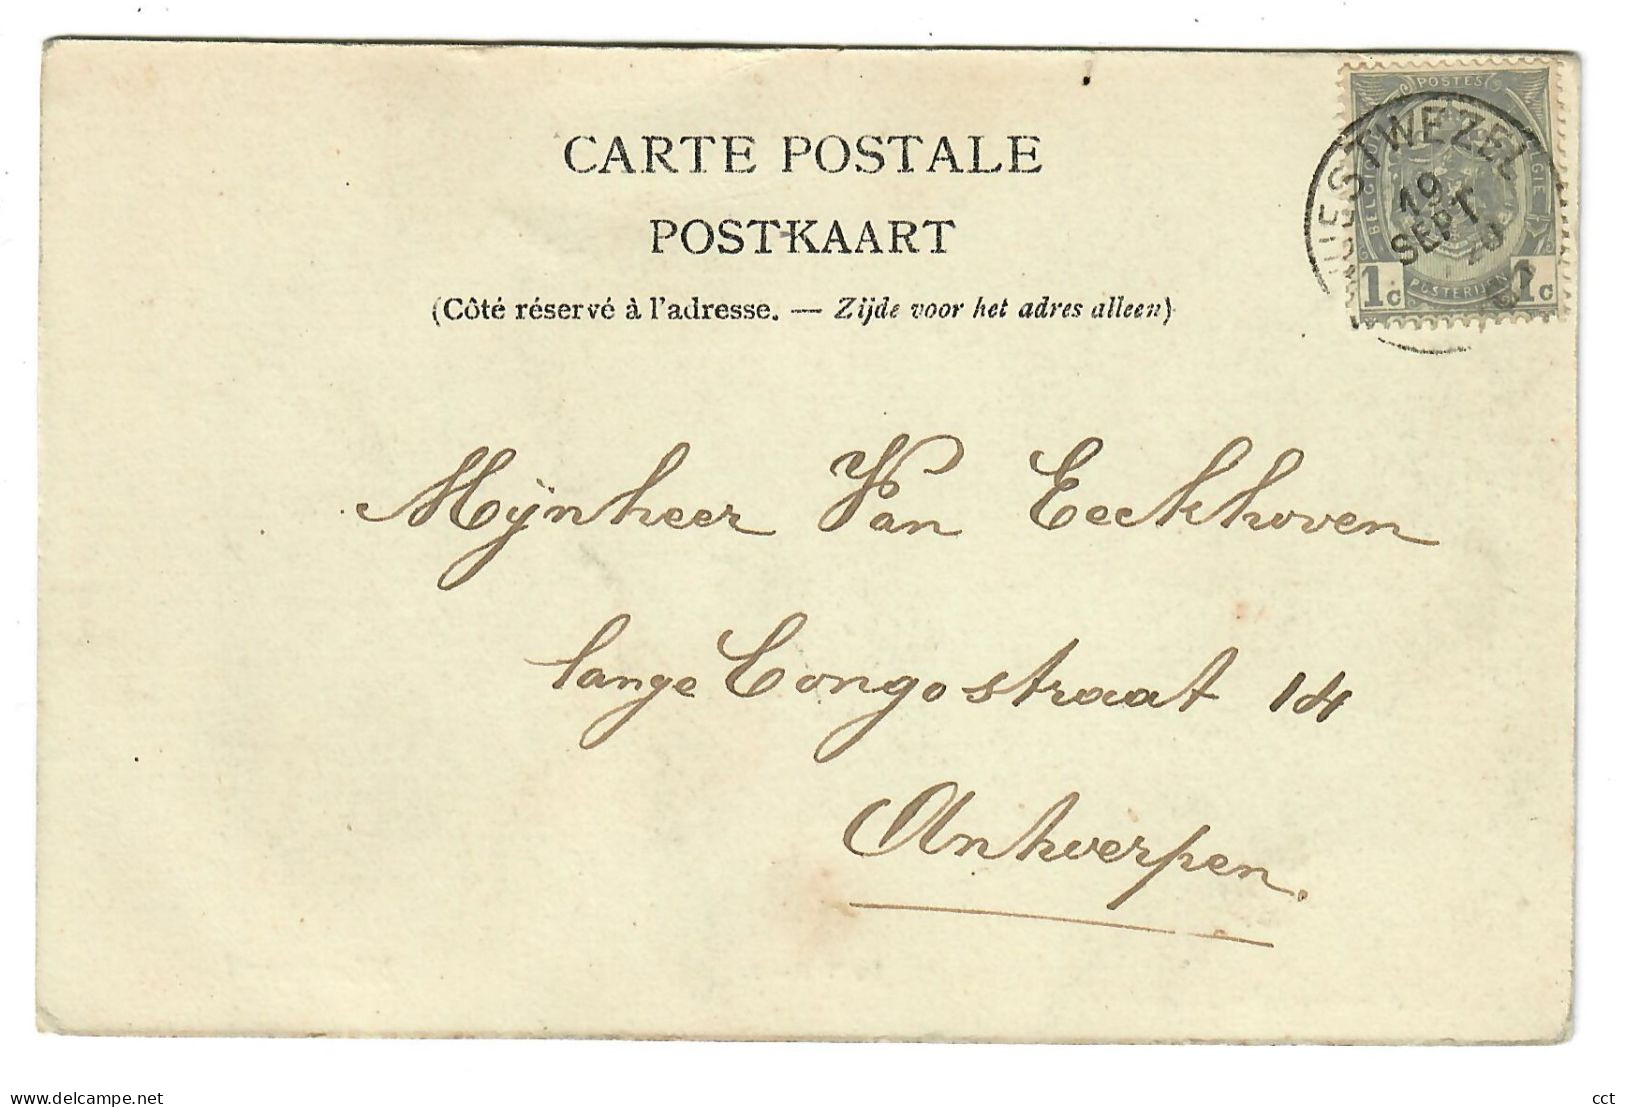 CARTE POSTALE
POSTKAART
(Côté réservé à l'adresse. — Zijde voor het adres alleen)
POSTES
POSTERIJEN
1c 1c
WUESTWEZEL
19
SEPT
Mijnheer Van Eeckhoven
lange Congostraat 14
Antwerpen.
delcampe.net
cct